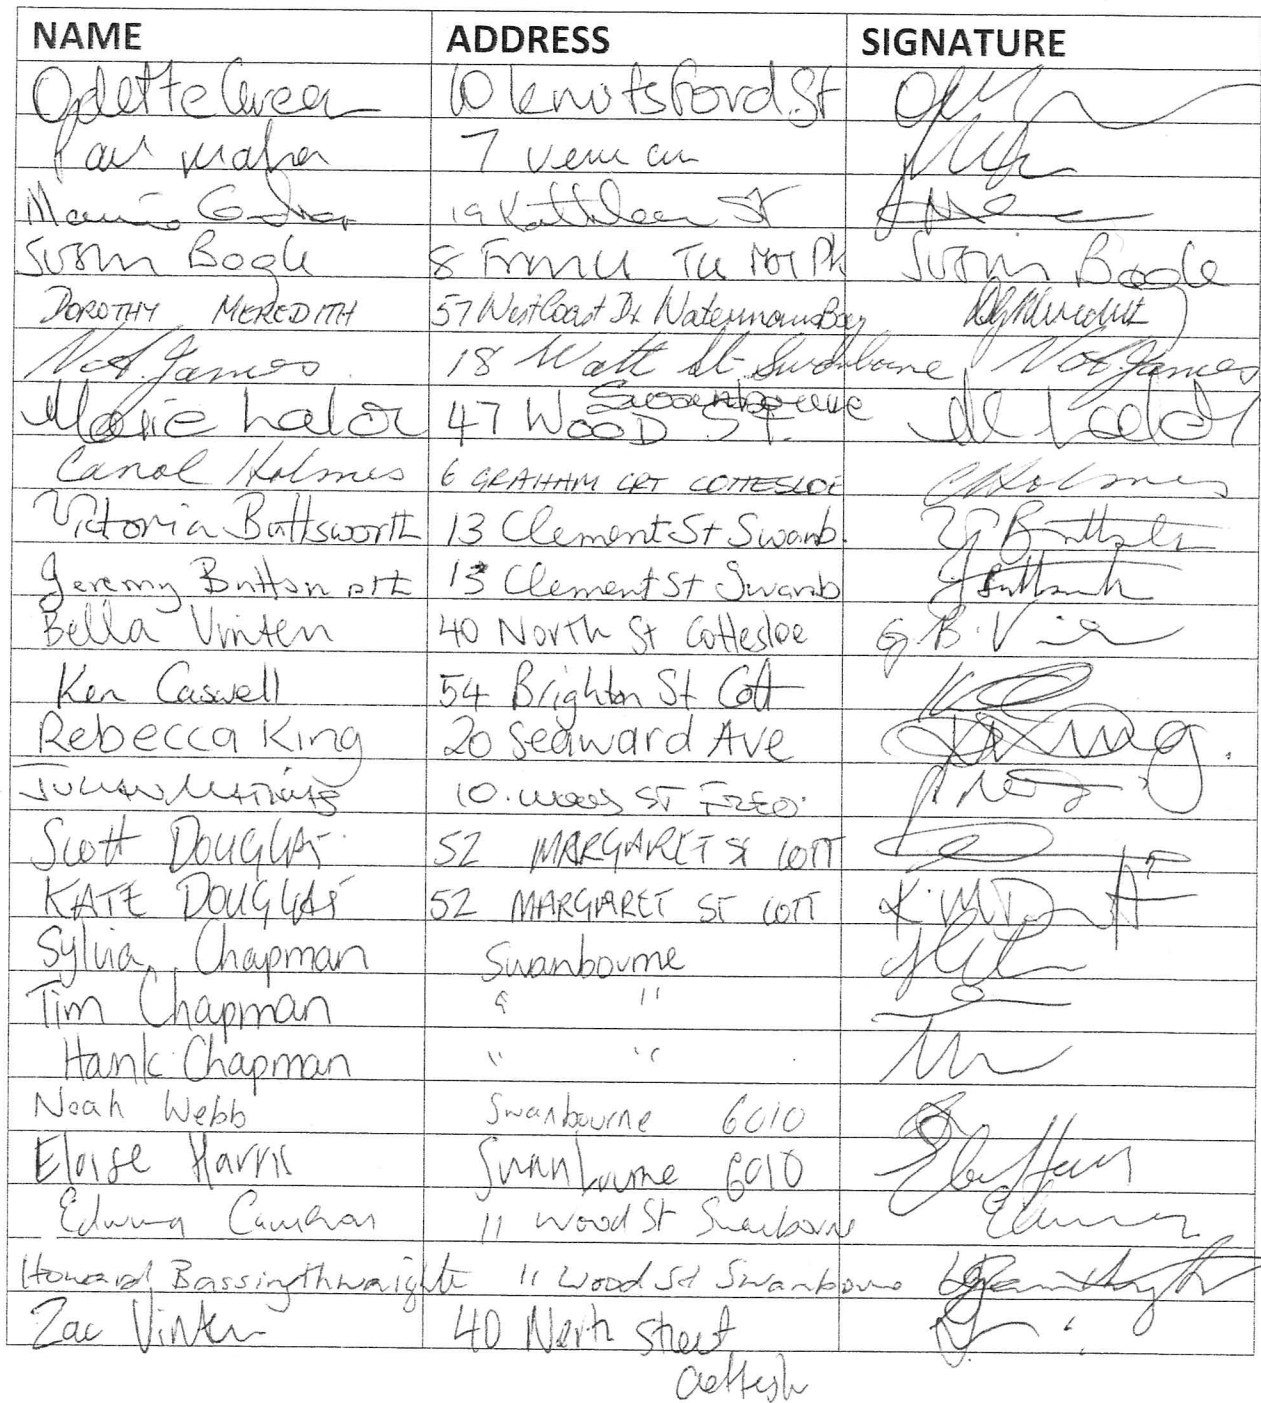 NAME ADDRESS SIGNATURE
Odette 10 Knutsford St
Paul Maher 7
19 Kathleen St
Susan Bogle 8 Susan Bogle
DOROTHY MEREDITH 57 West Coast Dr Watermans Bay
V. A. James 18 Watt St Swanbourne V. A. James
Marie Lalor 47 WOOD ST. Swanbourne M Lalor
Carol Holmes 6 GRAHAM CRT COTTESLOE C Holmes
Victoria Buttsworth 13 Clement St Swanb.
Jeremy Buttsworth 13 Clement St Swanb
Bella Vinten 40 North St Cottesloe
Ken Caswell 54 Brighton St Cott
Rebecca King 20 Seaward Ave
10 ST FREO
Scott DOUGLAS 52 MARGARET St COTT
KATE DOUGLAS 52 MARGARET ST COTT
Sylvia Chapman Swanbourne
Tim Chapman " "
Hank Chapman " "
Noah Webb Swanbourne 6010
Eloise Harris Swanbourne 6010
Edwina Cameron 11 Wood St Swanbourne
Howard Bassingthwaighte 11 Wood St Swanbourne
Zac Vinten 40 North Street